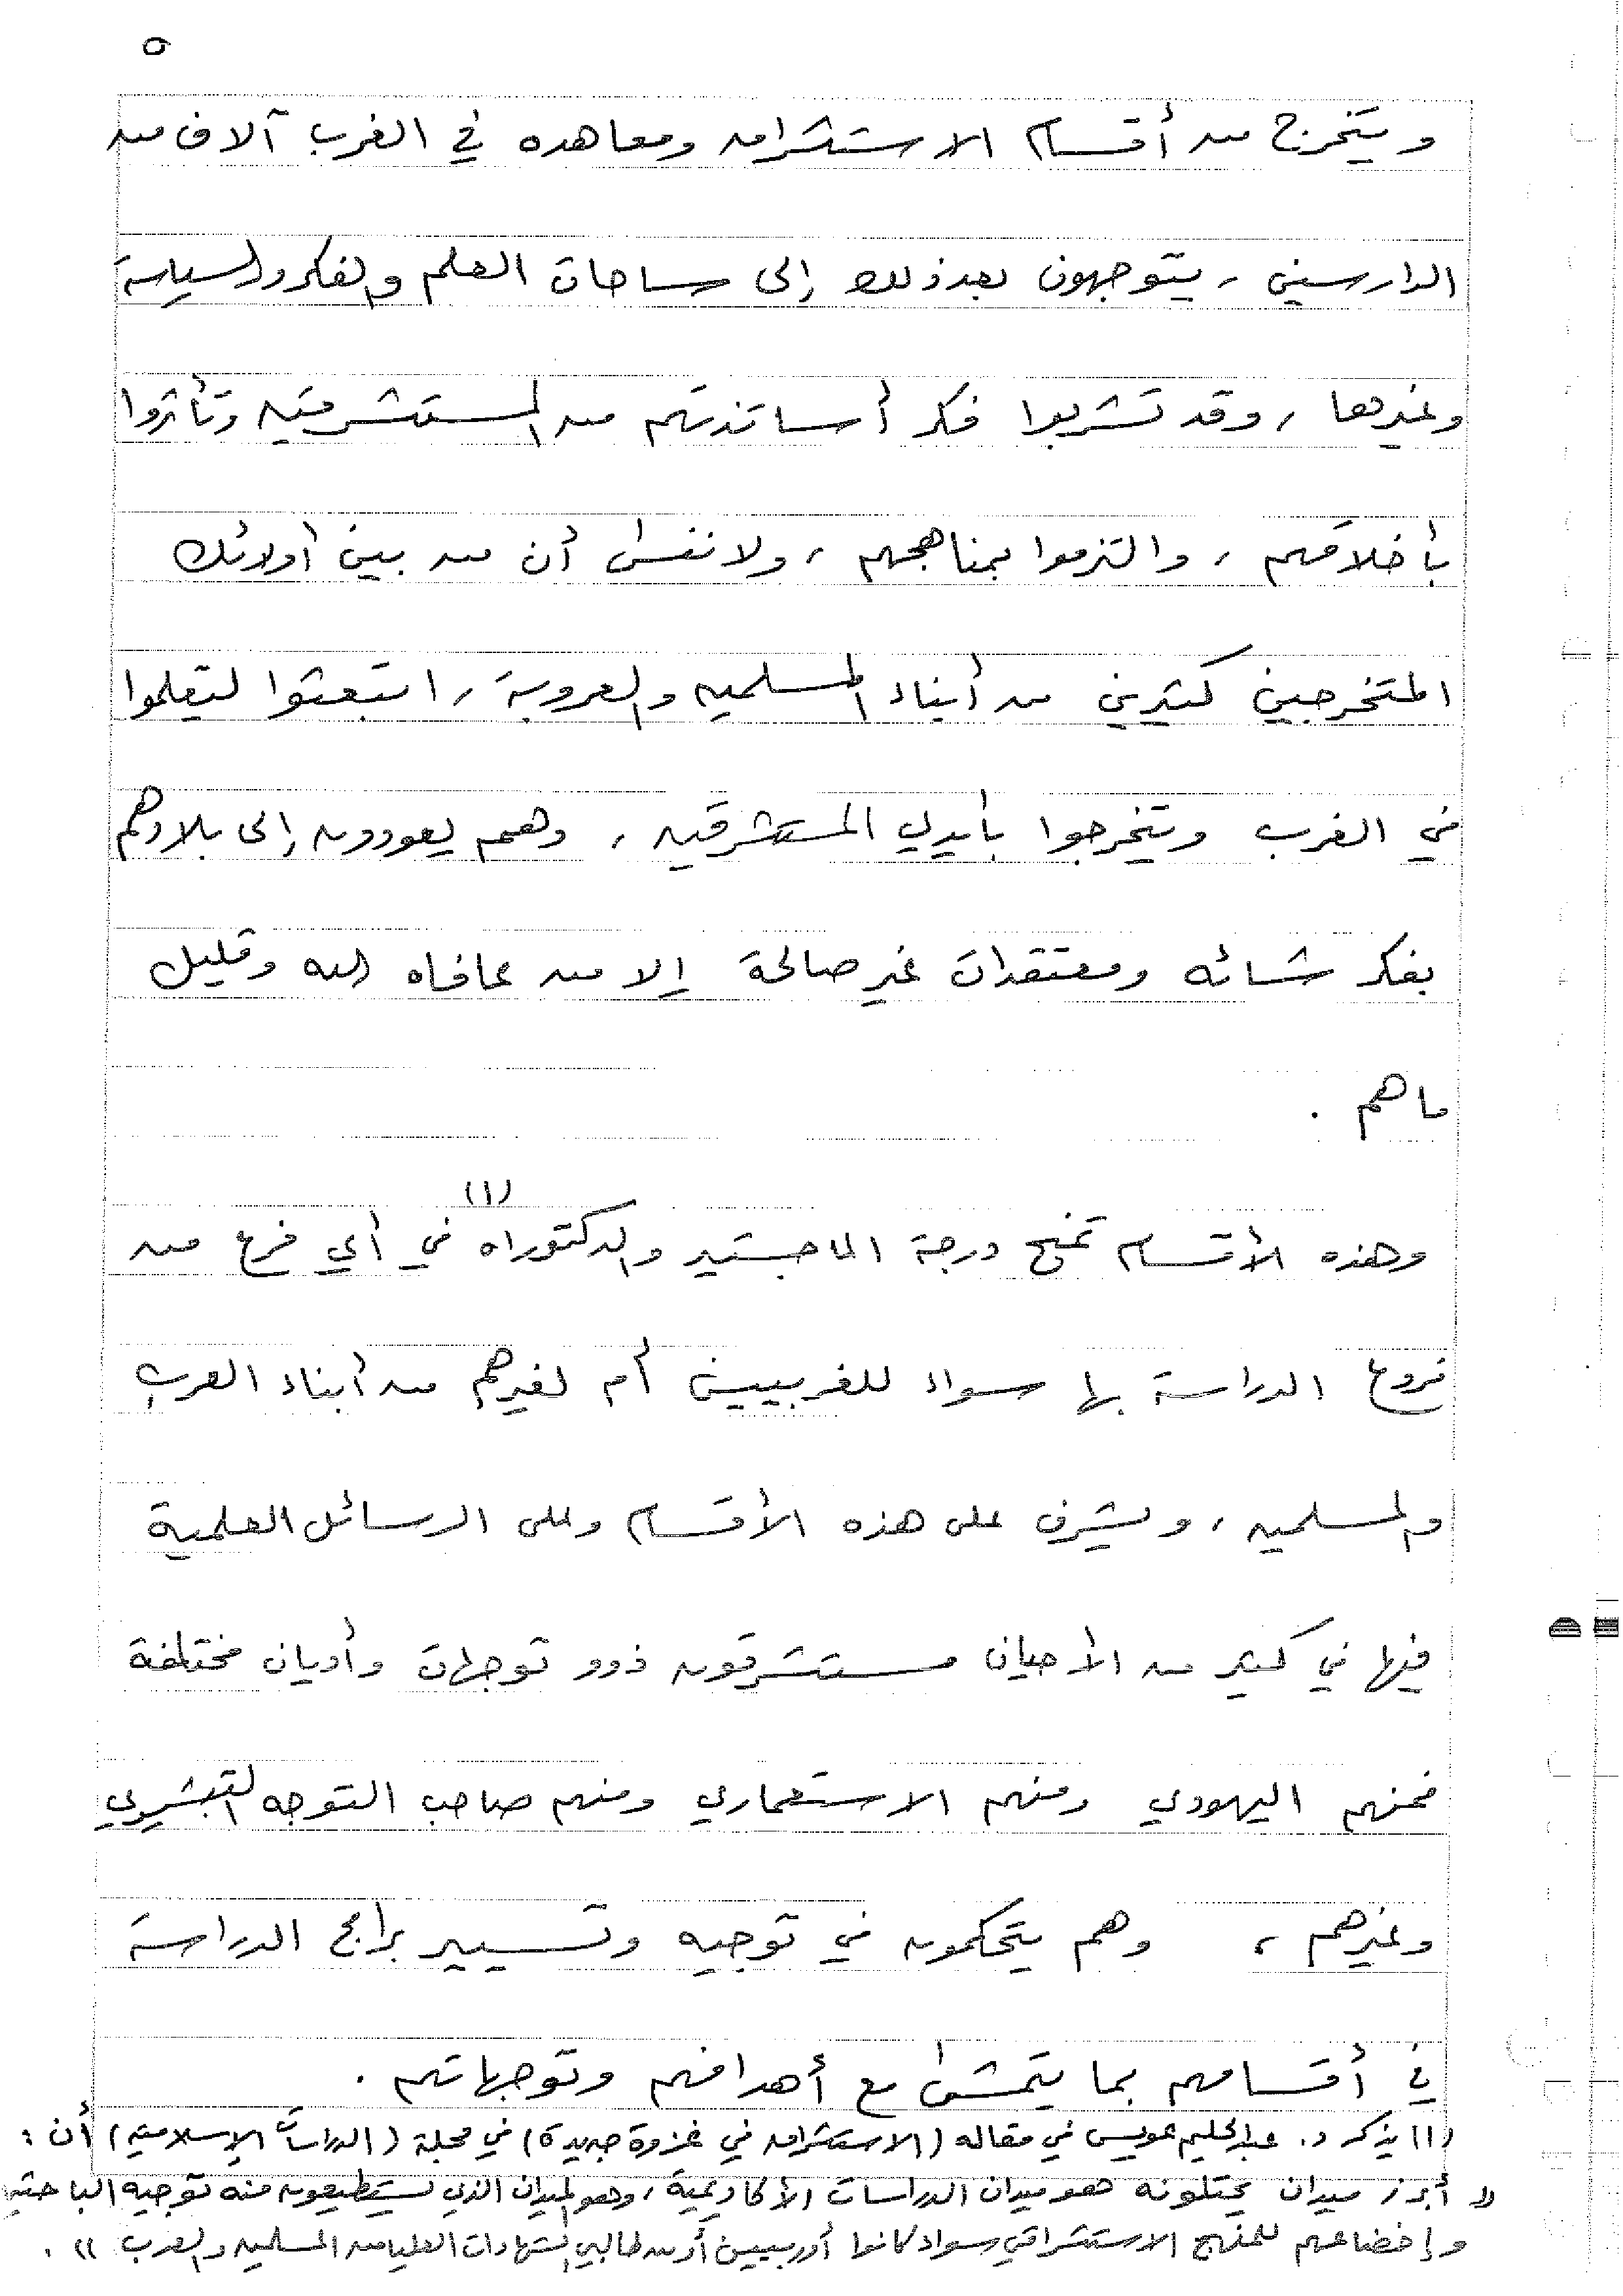 ٥
ويتخرج من أقسام الاستشراق ومعاهده في الغرب آلاف من
الدارسين ، يتوجهون بعد ذلك إلى ساحات العلم والفكر والسياسة
وغيرها ، وقد تشربوا فكر أساتذتهم من المستشرقين وتأثروا
بأخلاقهم ، والتزموا بمناهجهم ، ولا ننسى أن من بين أولائك
المتخرجين كثيرين من أبناء المسلمين والعروبة ، ابتعثوا ليتعلموا
في الغرب ويتخرجوا بأيدي المستشرقين ، وهم يعودون إلى بلادهم
بفكر شائه ومعتقدات غير صالحة إلا من عافاه الله وقليل
ما هم .
وهذه الأقسام تمنح درجة الماجستير والدكتوراه (١) في أي فرع من
فروع الدراسة بها سواء للغربيين أم لغيرهم من أبناء العرب
والمسلمين ، ويشرف على هذه الأقسام وعلى الرسائل العلمية
فيها في كثير من الأحيان مستشرقون ذوو توجهات وأديان مختلفة
فمنهم اليهودي ومنهم الاستعماري ومنهم صاحب التوجه التبشيري
وغيرهم ، وهم يتحكمون في توجيه وتسيير برامج الدراسة
في أقسامهم بما يتمشى مع أهدافهم وتوجهاتهم .
(١) يذكر د. عبدالحليم عويس في مقاله (الاستشراق في غزوة جديدة) في مجلة (الدراسات الإسلامية) أن :
« أبرز ميدان يحتلونه هو ميدان الدراسات الأكاديمية ، وهو الميدان الذي يستطيعون منه توجيه الباحثين
وإخضاعهم للمنهج الاستشراقي سواء كانوا أوربيين أو من طالبي الشهادات العليا من المسلمين والعرب » .